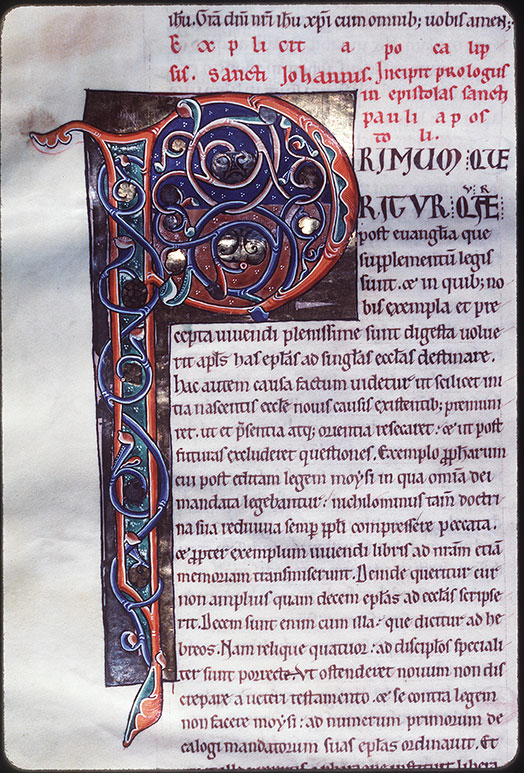 ihu. Gra dni nri ihu xpi cum omnib; uobis amen;
Explicit apocalip
sis. sancti Iohannis. Incipit prologus
in epistolas sancti
pauli apos
toli.
PRIMUM QUE
RITUR QARE
post euanglia que
supplementu legis
sunt. & in quib; no
bis exempla et pre
cepta uiuendi plenissime sunt digesta uolue
rit apls has eplas ad singlas ecclas destinare.
hac autem causa factum uidetur ut scilicet ini
tia nascentis eccle nouis causis existentib; premuni
ret. ut et psentia atq; orientia resecaret: & ut post
futuras excluderet questiones. Exemplo ppharum
qui post editam legem moysi in qua omia dei
mandata legebantur: nichilominus tam doctri
na sua rediuiua semp ppli compressere peccata.
& ppter exemplum uiuendi libris ad nram etia
memoriam transmiserunt. Deinde queritur cur
non amplius quam decem eplas ad ecclas scripse
rit. Decem sunt enim cum illa: que dicitur ad he
breos. Nam relique quatuor: ad disciplos speciali
ter sunt porrecte. Vt ostenderet nouum non dis
crepare a ueteri testamento. & se contra legem
non facere moysi: ad numerum primorum de
calogi mandatorum suas eplas ordinauit. Et